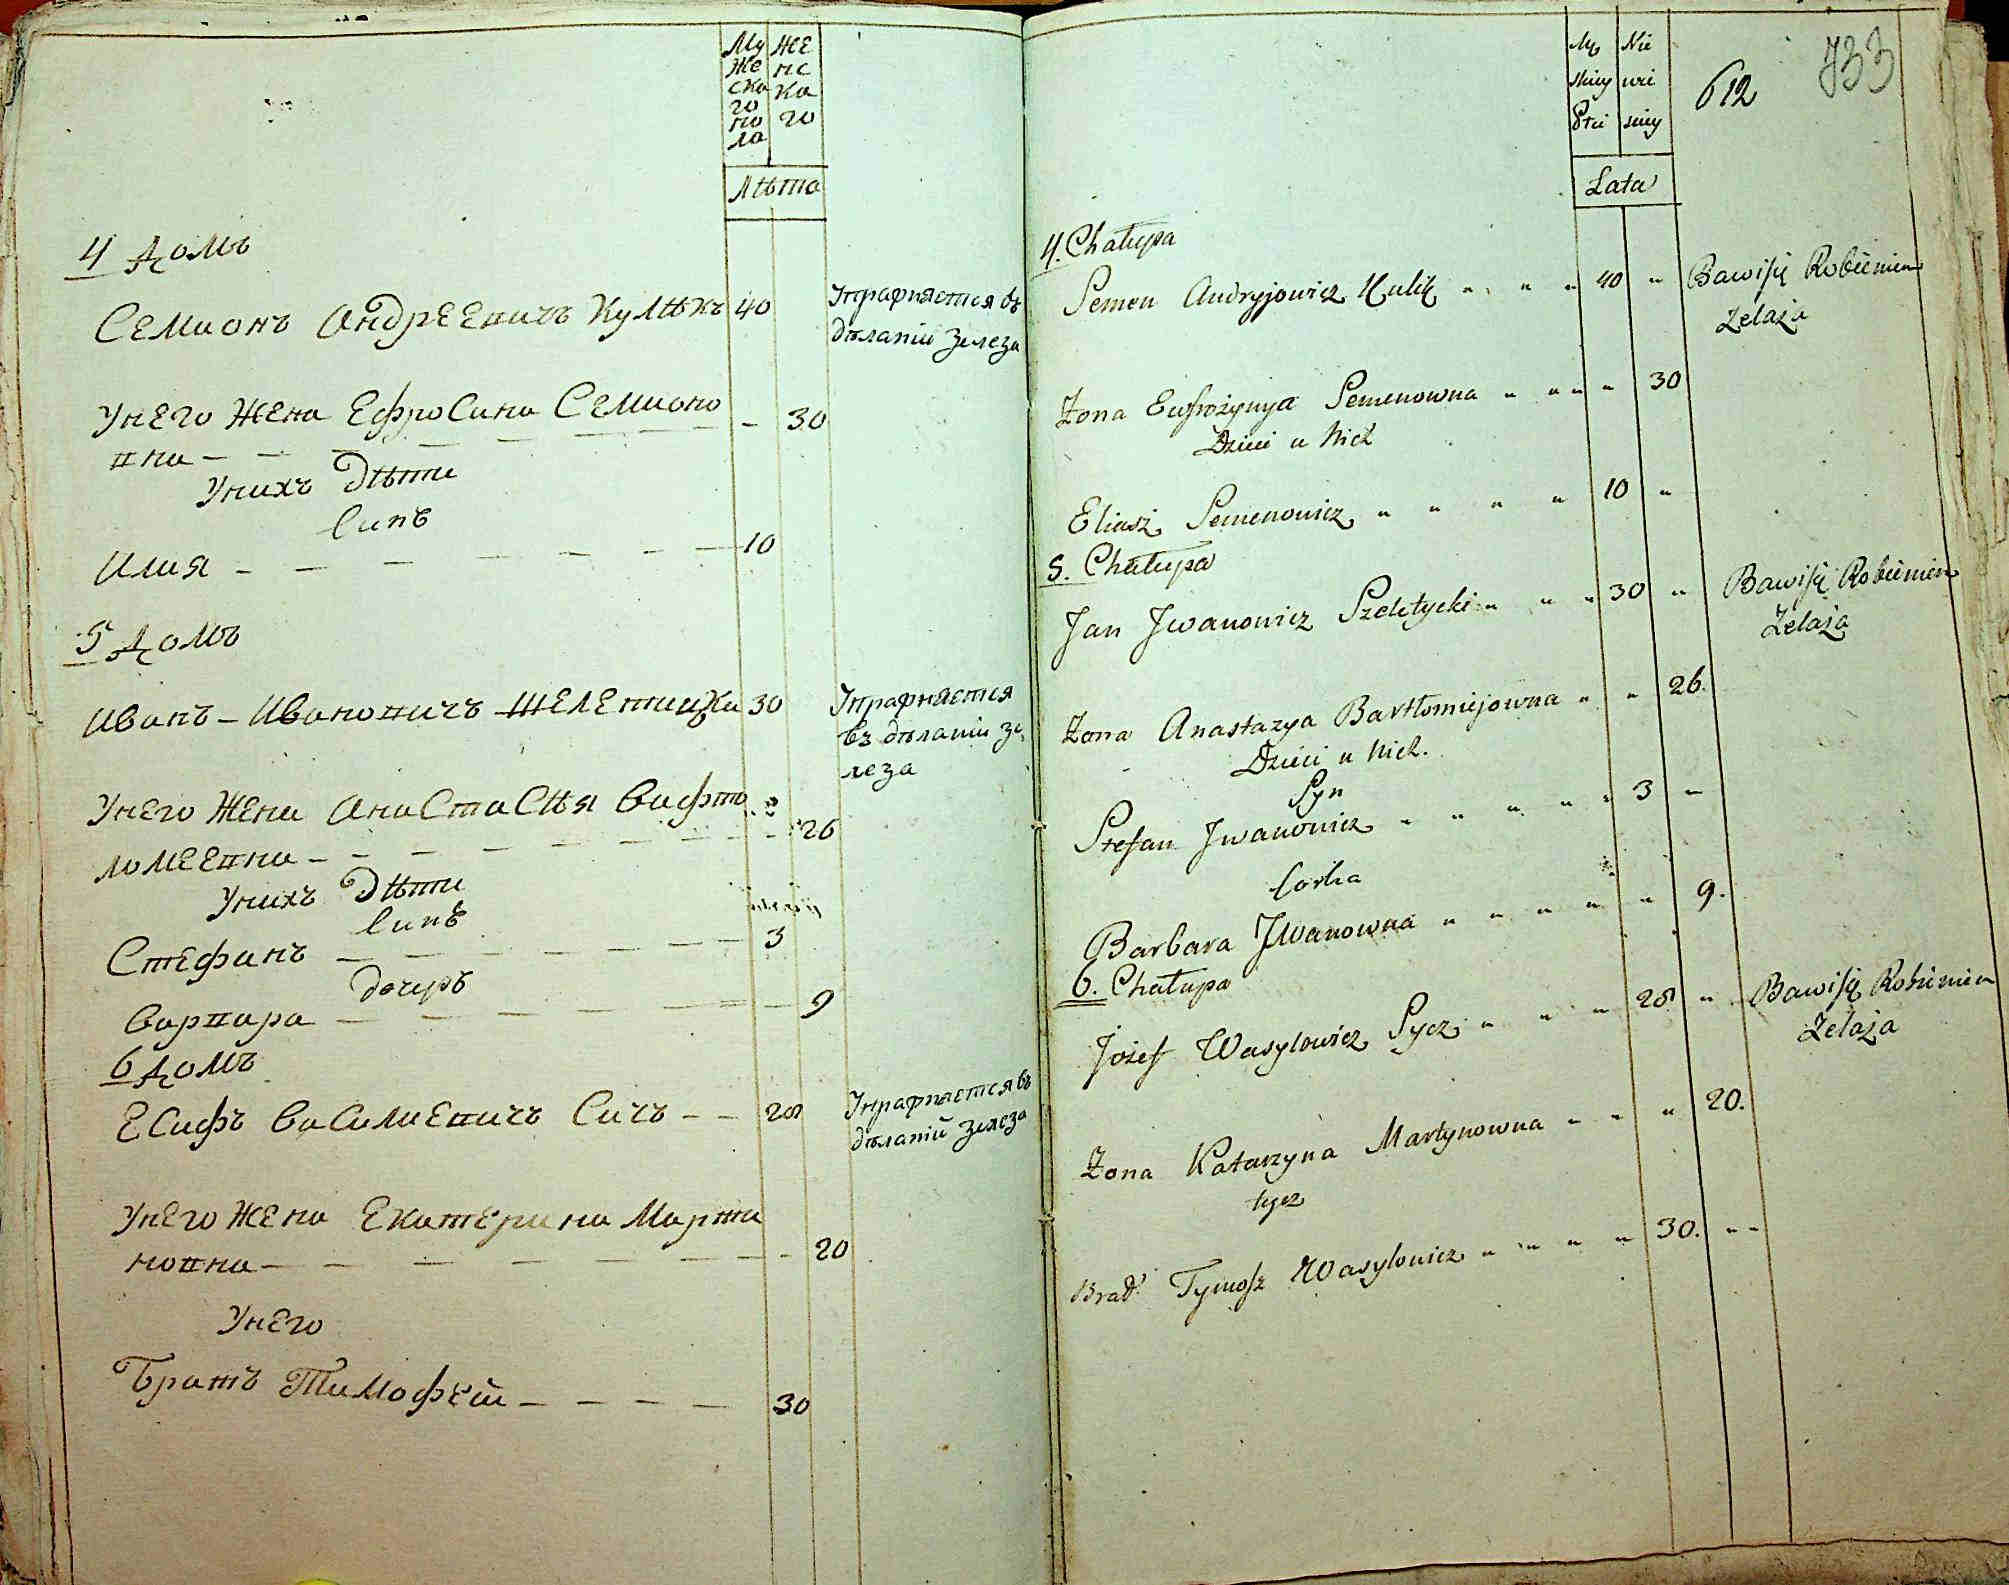 Му ЖЕ
Же нс
ска ка
го го
по
ла
Лѣта
4 Домъ
Семионъ Андреевичъ Кулѣкъ 40
Упрафняется въ
дѣланіи зелеза
Унего Жена Ефросина Семионо
вна — — — — — — — — 30
Унихъ Дѣти
Синъ
Илия — — — — — — — 10
5 Домъ
Иванъ – Ивановичъ Шелетицки 30
Упрафняется
въ дѣланіи зе
леза
Унего Жена Анастасѣя Вафто
ломеевна — — — — — — — — 26
Унихъ Дѣти
Синъ
Стефанъ — — — — — — — 3
Дочеръ
Варвара — — — — — — — — 9
6 Домъ
Есифъ Василиевичъ Сичъ — — 28
Упрафняется въ
дѣланіи зелеза
Унего Жена Екатерина Марти
новна — — — — — — — 20
Унего
Братъ Тимофей — — — — — 30
612
733
Mę Nie
skiey wie
Płci skiey
Lata
4. Chałupa
Semen Andryjowicz Kulik „ „ „ 40 „
Bawi się Robieniem
Żelaza
Żona Eufrozynya Semenowna „ „ „ „ 30
Dzieci u Nich
Eliasz Semenowicz „ „ „ „ 10 „
5. Chałupa
Jan Jwanowicz Szeletycki „ „ „ 30 „
Bawi się Robieniem
Żelaza
Żona Anastazya Bartłomiejowna „ „ 26.
Dzieci u Nich.
Syn
Stefan Jwanowicz „ „ „ „ „ 3 „
Corka
Barbara Jwanowna „ „ „ „ „ „ 9.
6. Chałupa
Jozef Wasylowicz Sycz „ „ „ 28 „
Bawi się Robieniem
Żelaza
Żona Katarzyna Martynowna „ „ „ 20.
tegoż
Brat Tymosz Wasylowicz „ „ „ „ 30. „ „